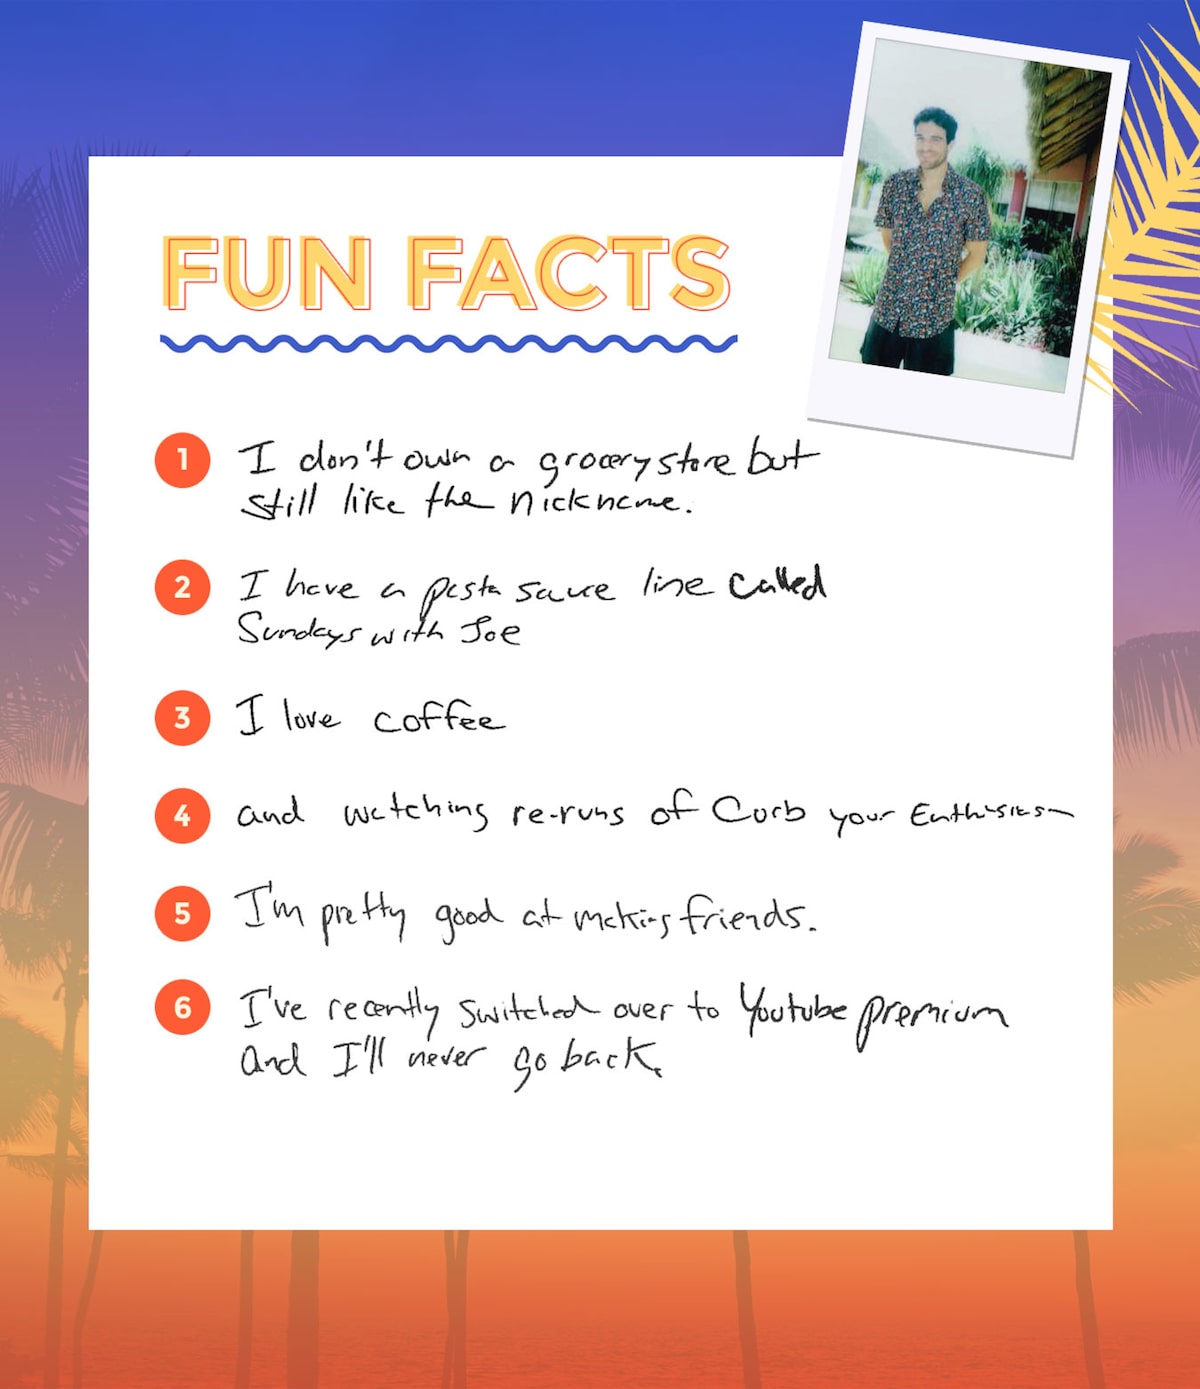 FUN FACTS
1 I don't own a grocery store but
still like the nickname.
2 I have a pasta sauce line called
Sundays with Joe
3 I love coffee
4 and watching re-runs of Curb your Enthusiasm
5 I'm pretty good at making friends.
6 I've recently switched over to Youtube premium
and I'll never go back.